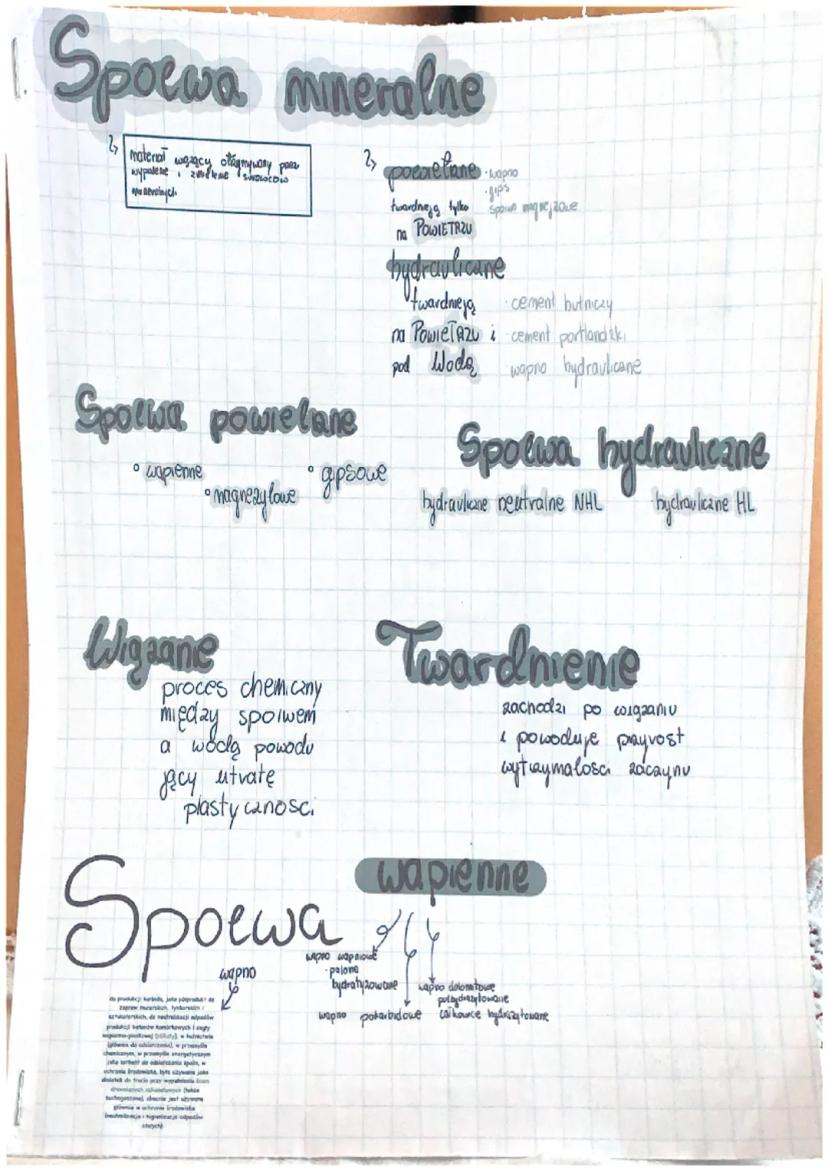 Spoiwa mineralne
materiał wiążący otrzymywany przez
wypalenie i zmielenie surowców
mineralnych
powietrzne · wapno
· gips
twardnieją tylko spoiwa magnezjowe
na POWIETRZU
hydrauliczne
twardnieją · cement hutniczy
na POWIETRZU i · cement portlandzki
pod Wodą wapno hydrauliczne
Spoiwa powietrzne
° wapienne
° gipsowe
° magnezytowe
Spoiwa hydrauliczne
hydrauliczne neutralne NHL hydrauliczne HL
Wiązanie
proces chemiczny
między spoiwem
a wodą powodu
jący utratę
plastyczności
Twardnienie
zachodzi po wiązaniu
i powoduje przyrost
wytrzymałości zaczynu
Spoiwa wapienne
wapno
wapno wapniowe
· palone
hydratyzowane
wapno dolomitowe
półhydratyzowane
całkowicie hydratyzowane
wapno pokarbidowe
do produkcji karbidu, jako półprodukt do
zapraw murarskich, tynkarskich i
sztukatorskich, do neutralizacji odpadów
produkcji betonów komórkowych i cegły
wapienno-piaskowej (silikaty), w hutnictwie
(głównie do odsiarczania), w przemyśle
chemicznym, w przemyśle energetycznym
jako sorbent do odsiarczania spalin, w
ochronie środowiska, było używane jako
dodatek do
obecnie jest używane
głównie w ochronie środowiska
(neutralizacja i higienizacja odpadów
stałych).